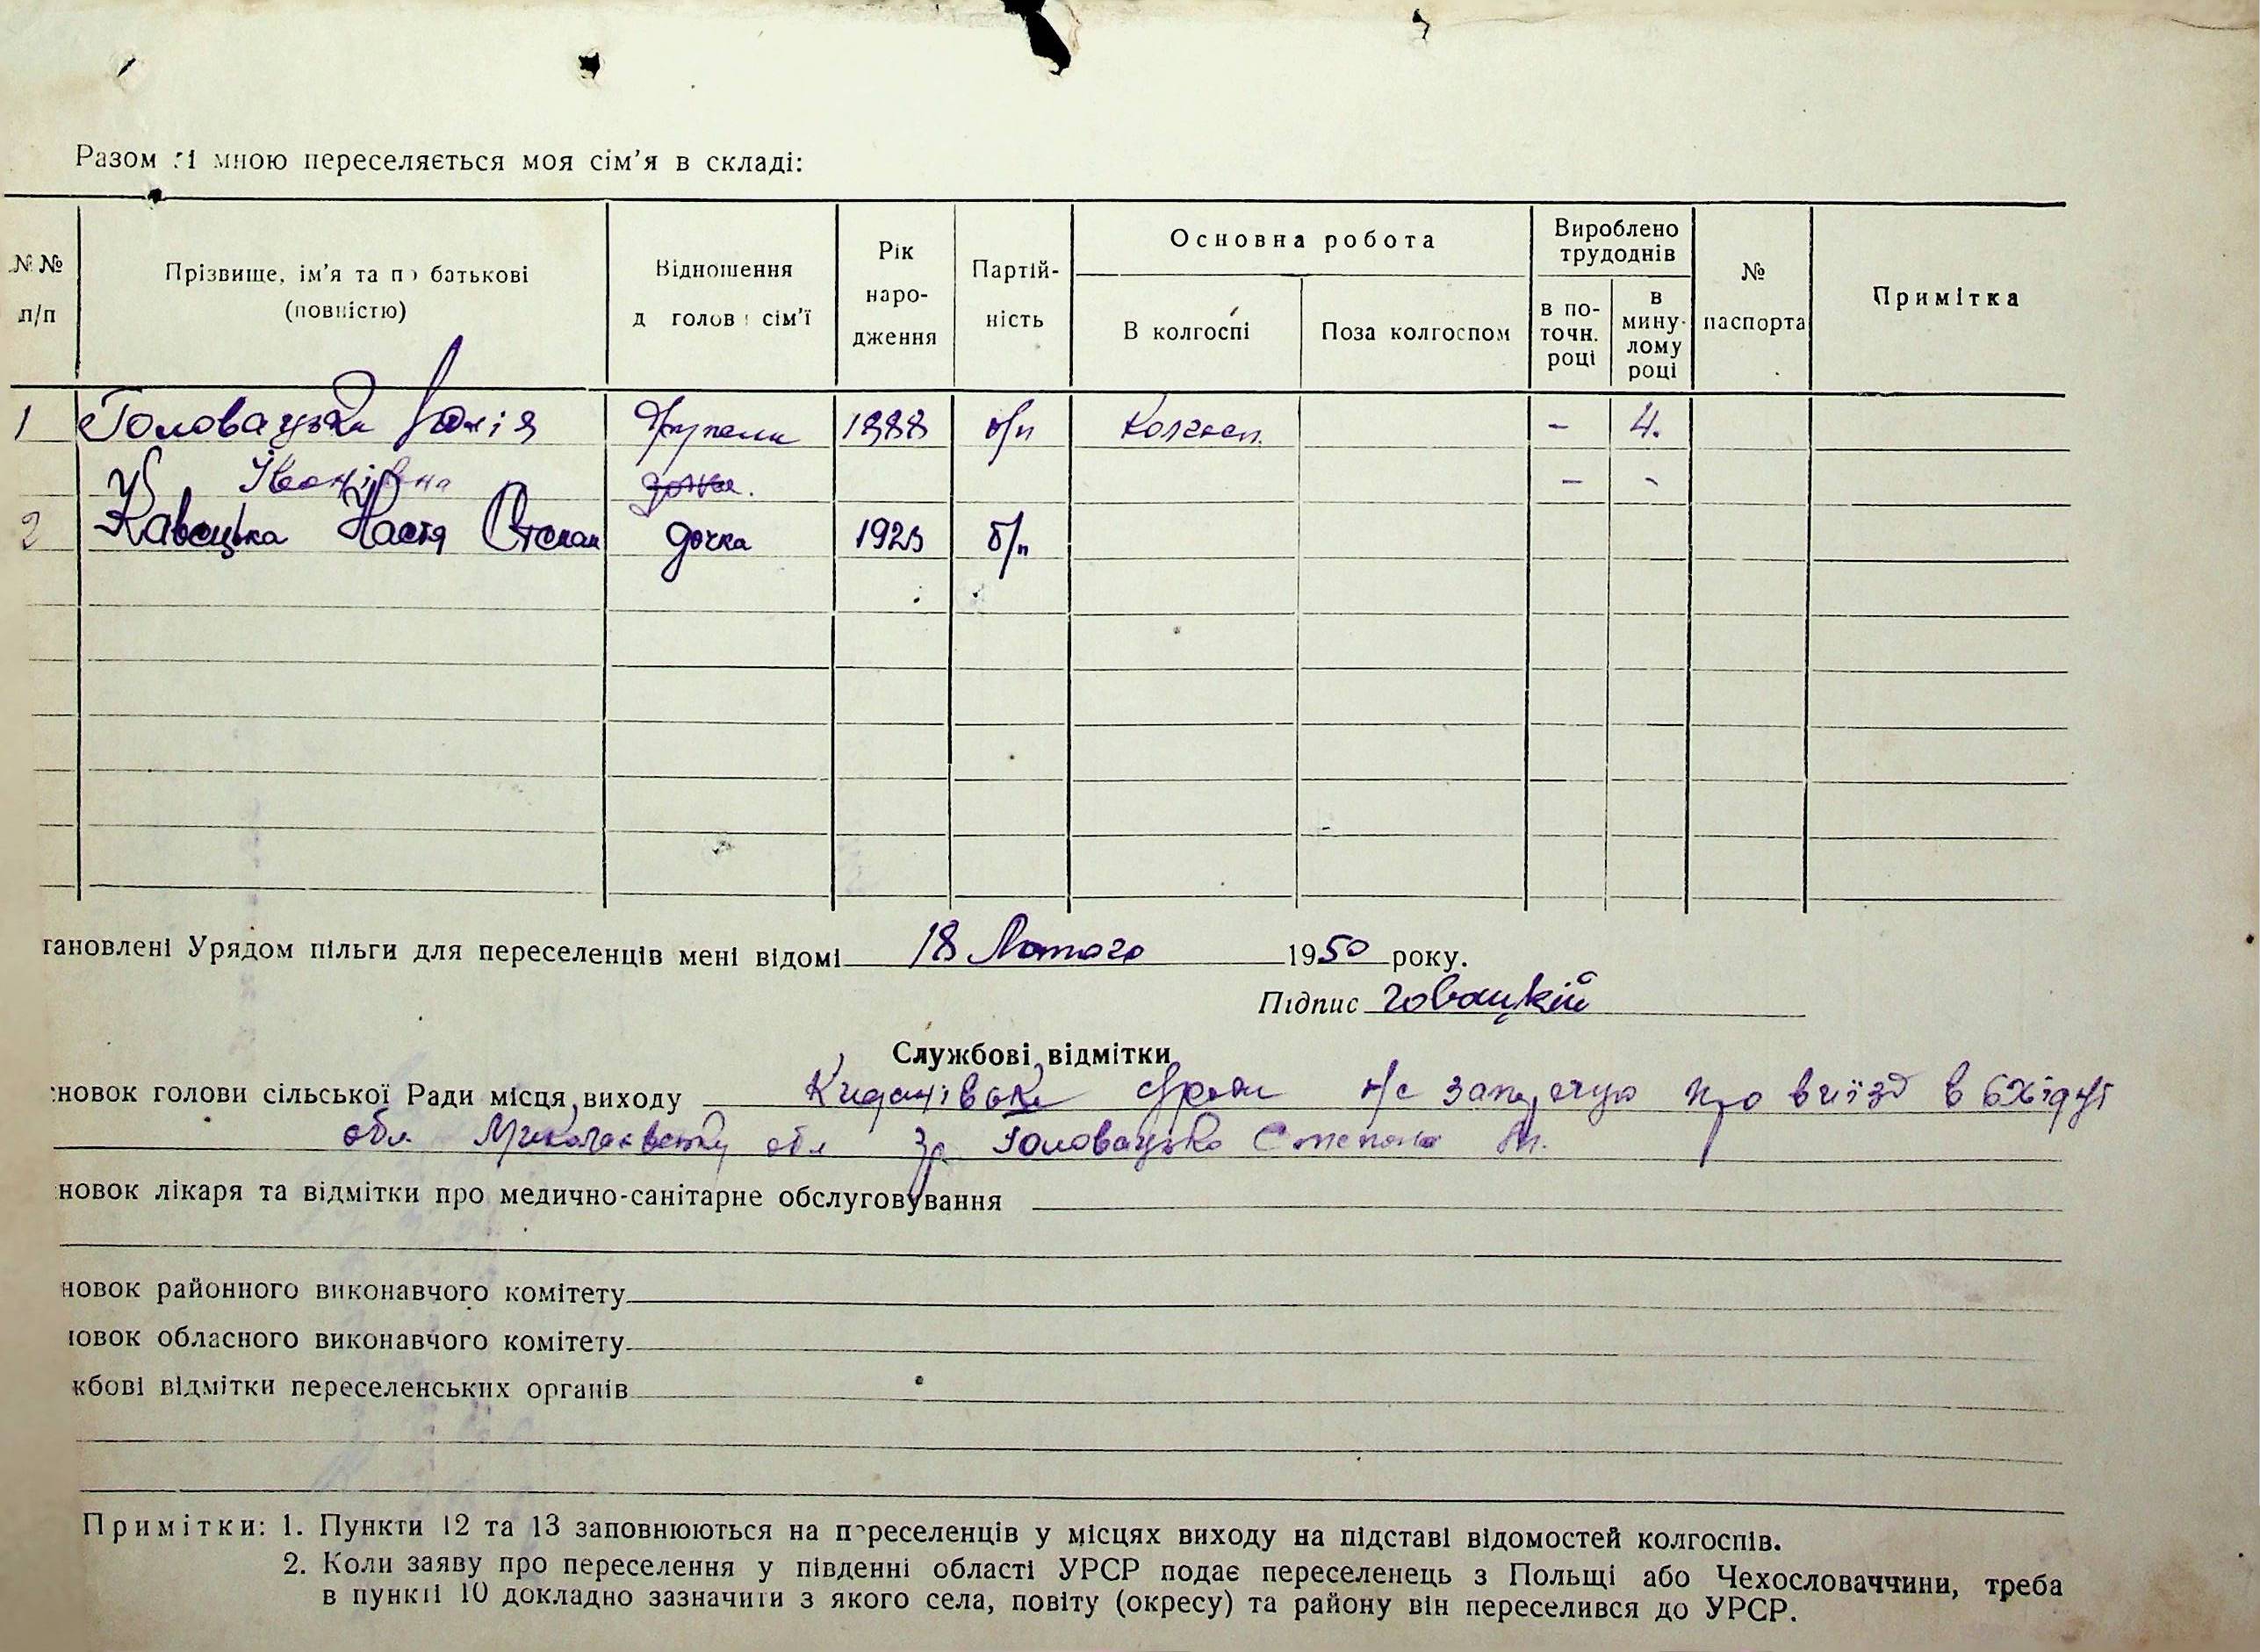 Разом зі мною переселяється моя сім'я в складі:
№ №
п/п
Прізвище, ім'я та по батькові
(повністю)
Відношення
д голов сім'ї
Рік
наро-
дження
Партій-
ність
Основна робота
В колгоспі
Поза колгоспом
Вироблено
трудоднів
в по-
точн.
році
в
мину-
лому
році
№
паспорта
Примітка
1 Головацька 1888 б/п Колгосп. - 4.
Іванівна дочка. - -
2 Кавецька Настя Степан дочка 1925 б/п
тановлені Урядом пільги для переселенців мені відомі 18 Лютого 1950 року.
Підпис
Службові відмітки
новок голови сільської Ради місця виходу про виїзд в
обл Миколаївську обл гр. Головацько Степана
новок лікаря та відмітки про медично-санітарне обслуговування
новок районного виконавчого комітету
новок обласного виконавчого комітету
жбові відмітки переселенських органів
Примітки: 1. Пункти 12 та 13 заповнюються на переселенців у місцях виходу на підставі відомостей колгоспів.
2. Коли заяву про переселення у південні області УРСР подає переселенець з Польщі або Чехословаччини, треба
в пункті 10 докладно зазначити з якого села, повіту (окресу) та району він переселився до УРСР.